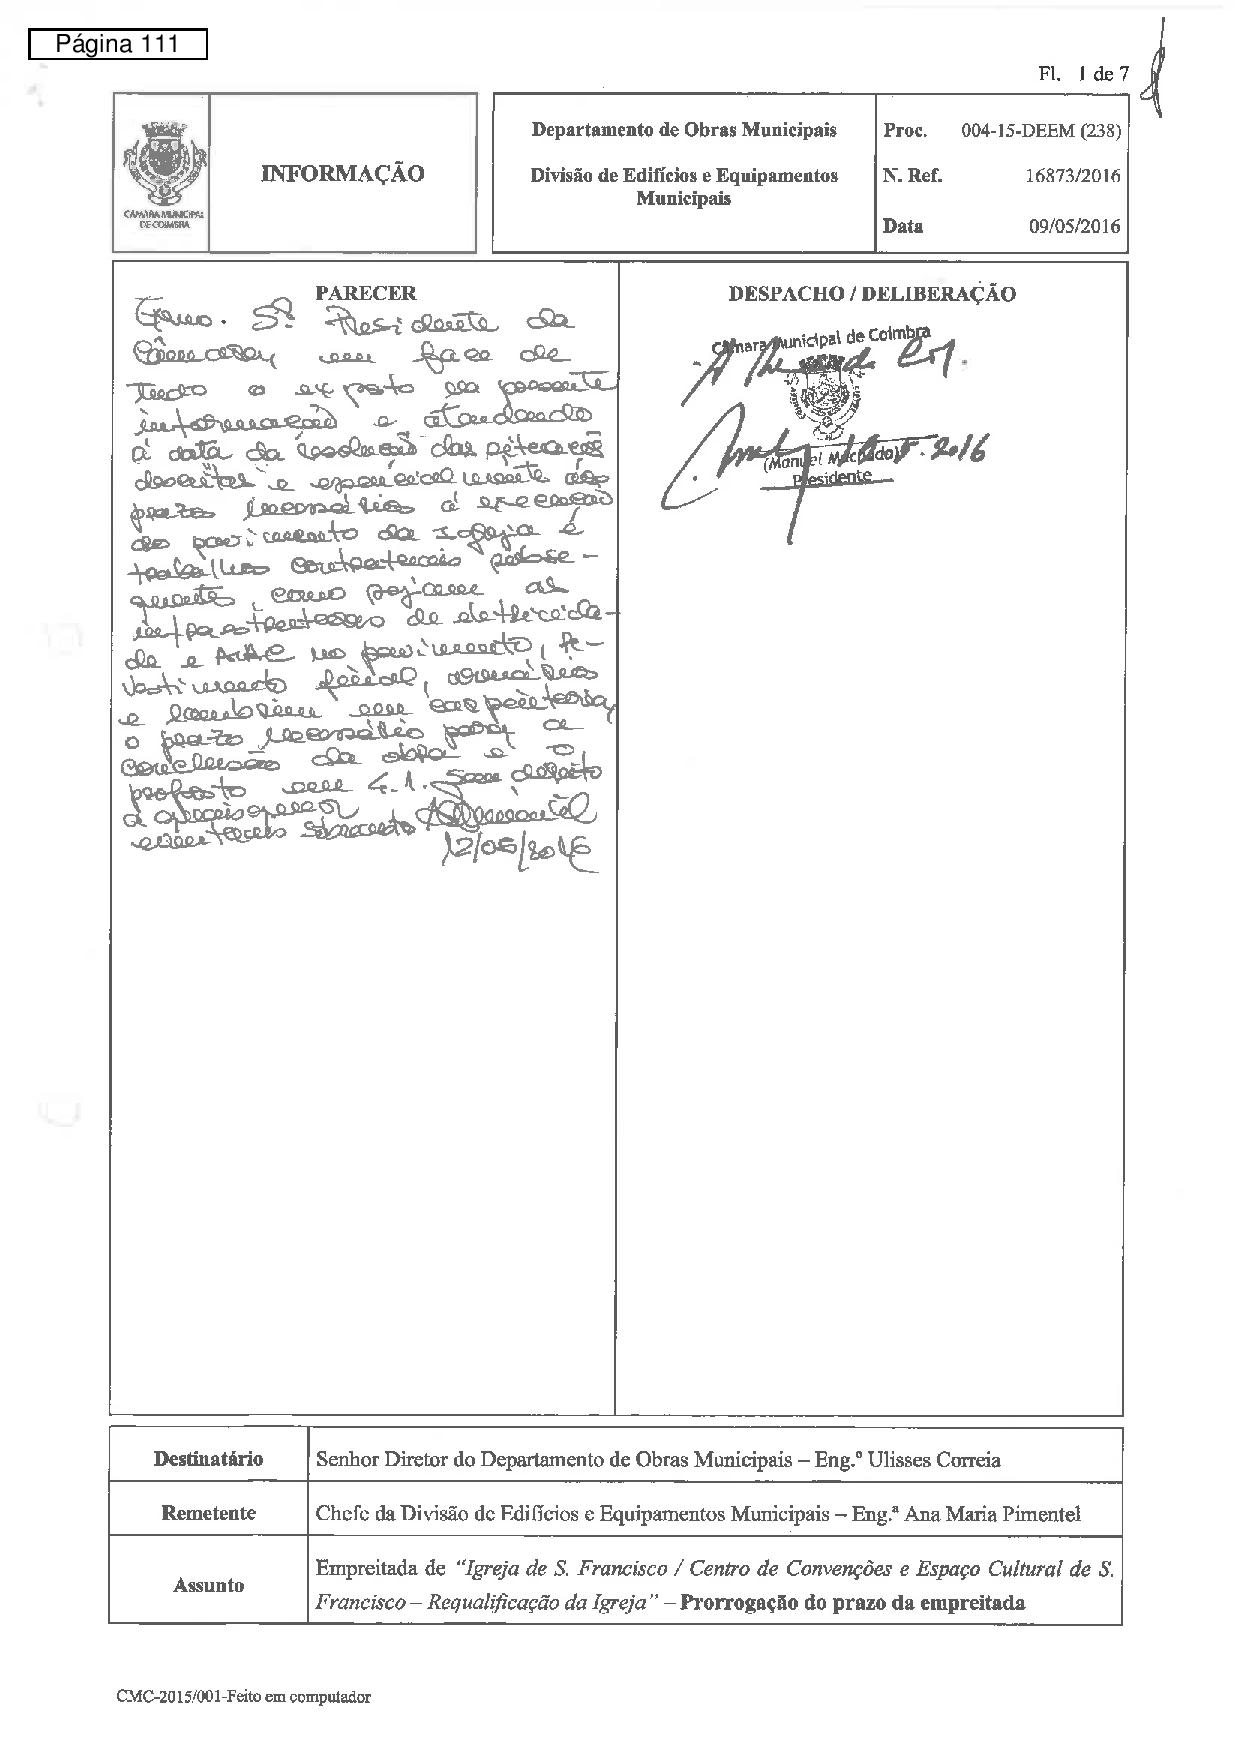 Página 111
Fl. 1 de 7
CÂMARA MUNICIPAL
DE COIMBRA
INFORMAÇÃO
Departamento de Obras Municipais
Divisão de Edifícios e Equipamentos
Municipais
Proc. 004-15-DEEM (238)
N. Ref. 16873/2016
Data 09/05/2016
PARECER
Exmo. Sr. Presidente da
Câmara, em face de
tudo o exposto na presente
informação e atendendo
à data da resolução das
e especialmente
prazo necessário à execução
do pavimento da Igreja e
trabalhos contratuais
, como sejam as
infraestruturas de eletricida-
de e AVAC no pavimento, re-
vestimento
e em carpintaria,
o prazo necessário para a
conclusão da obra é o
proposto em 4.1.
12/05/2016
DESPACHO / DELIBERAÇÃO
Câmara Municipal de Coimbra
2016
(Manuel Machado)
Presidente
Destinatário Senhor Diretor do Departamento de Obras Municipais – Eng.º Ulisses Correia
Remetente Chefe da Divisão de Edifícios e Equipamentos Municipais – Eng.ª Ana Maria Pimentel
Assunto Empreitada de "Igreja de S. Francisco / Centro de Convenções e Espaço Cultural de S.
Francisco – Requalificação da Igreja" – Prorrogação do prazo da empreitada
CMC-2015/001-Feito em computador